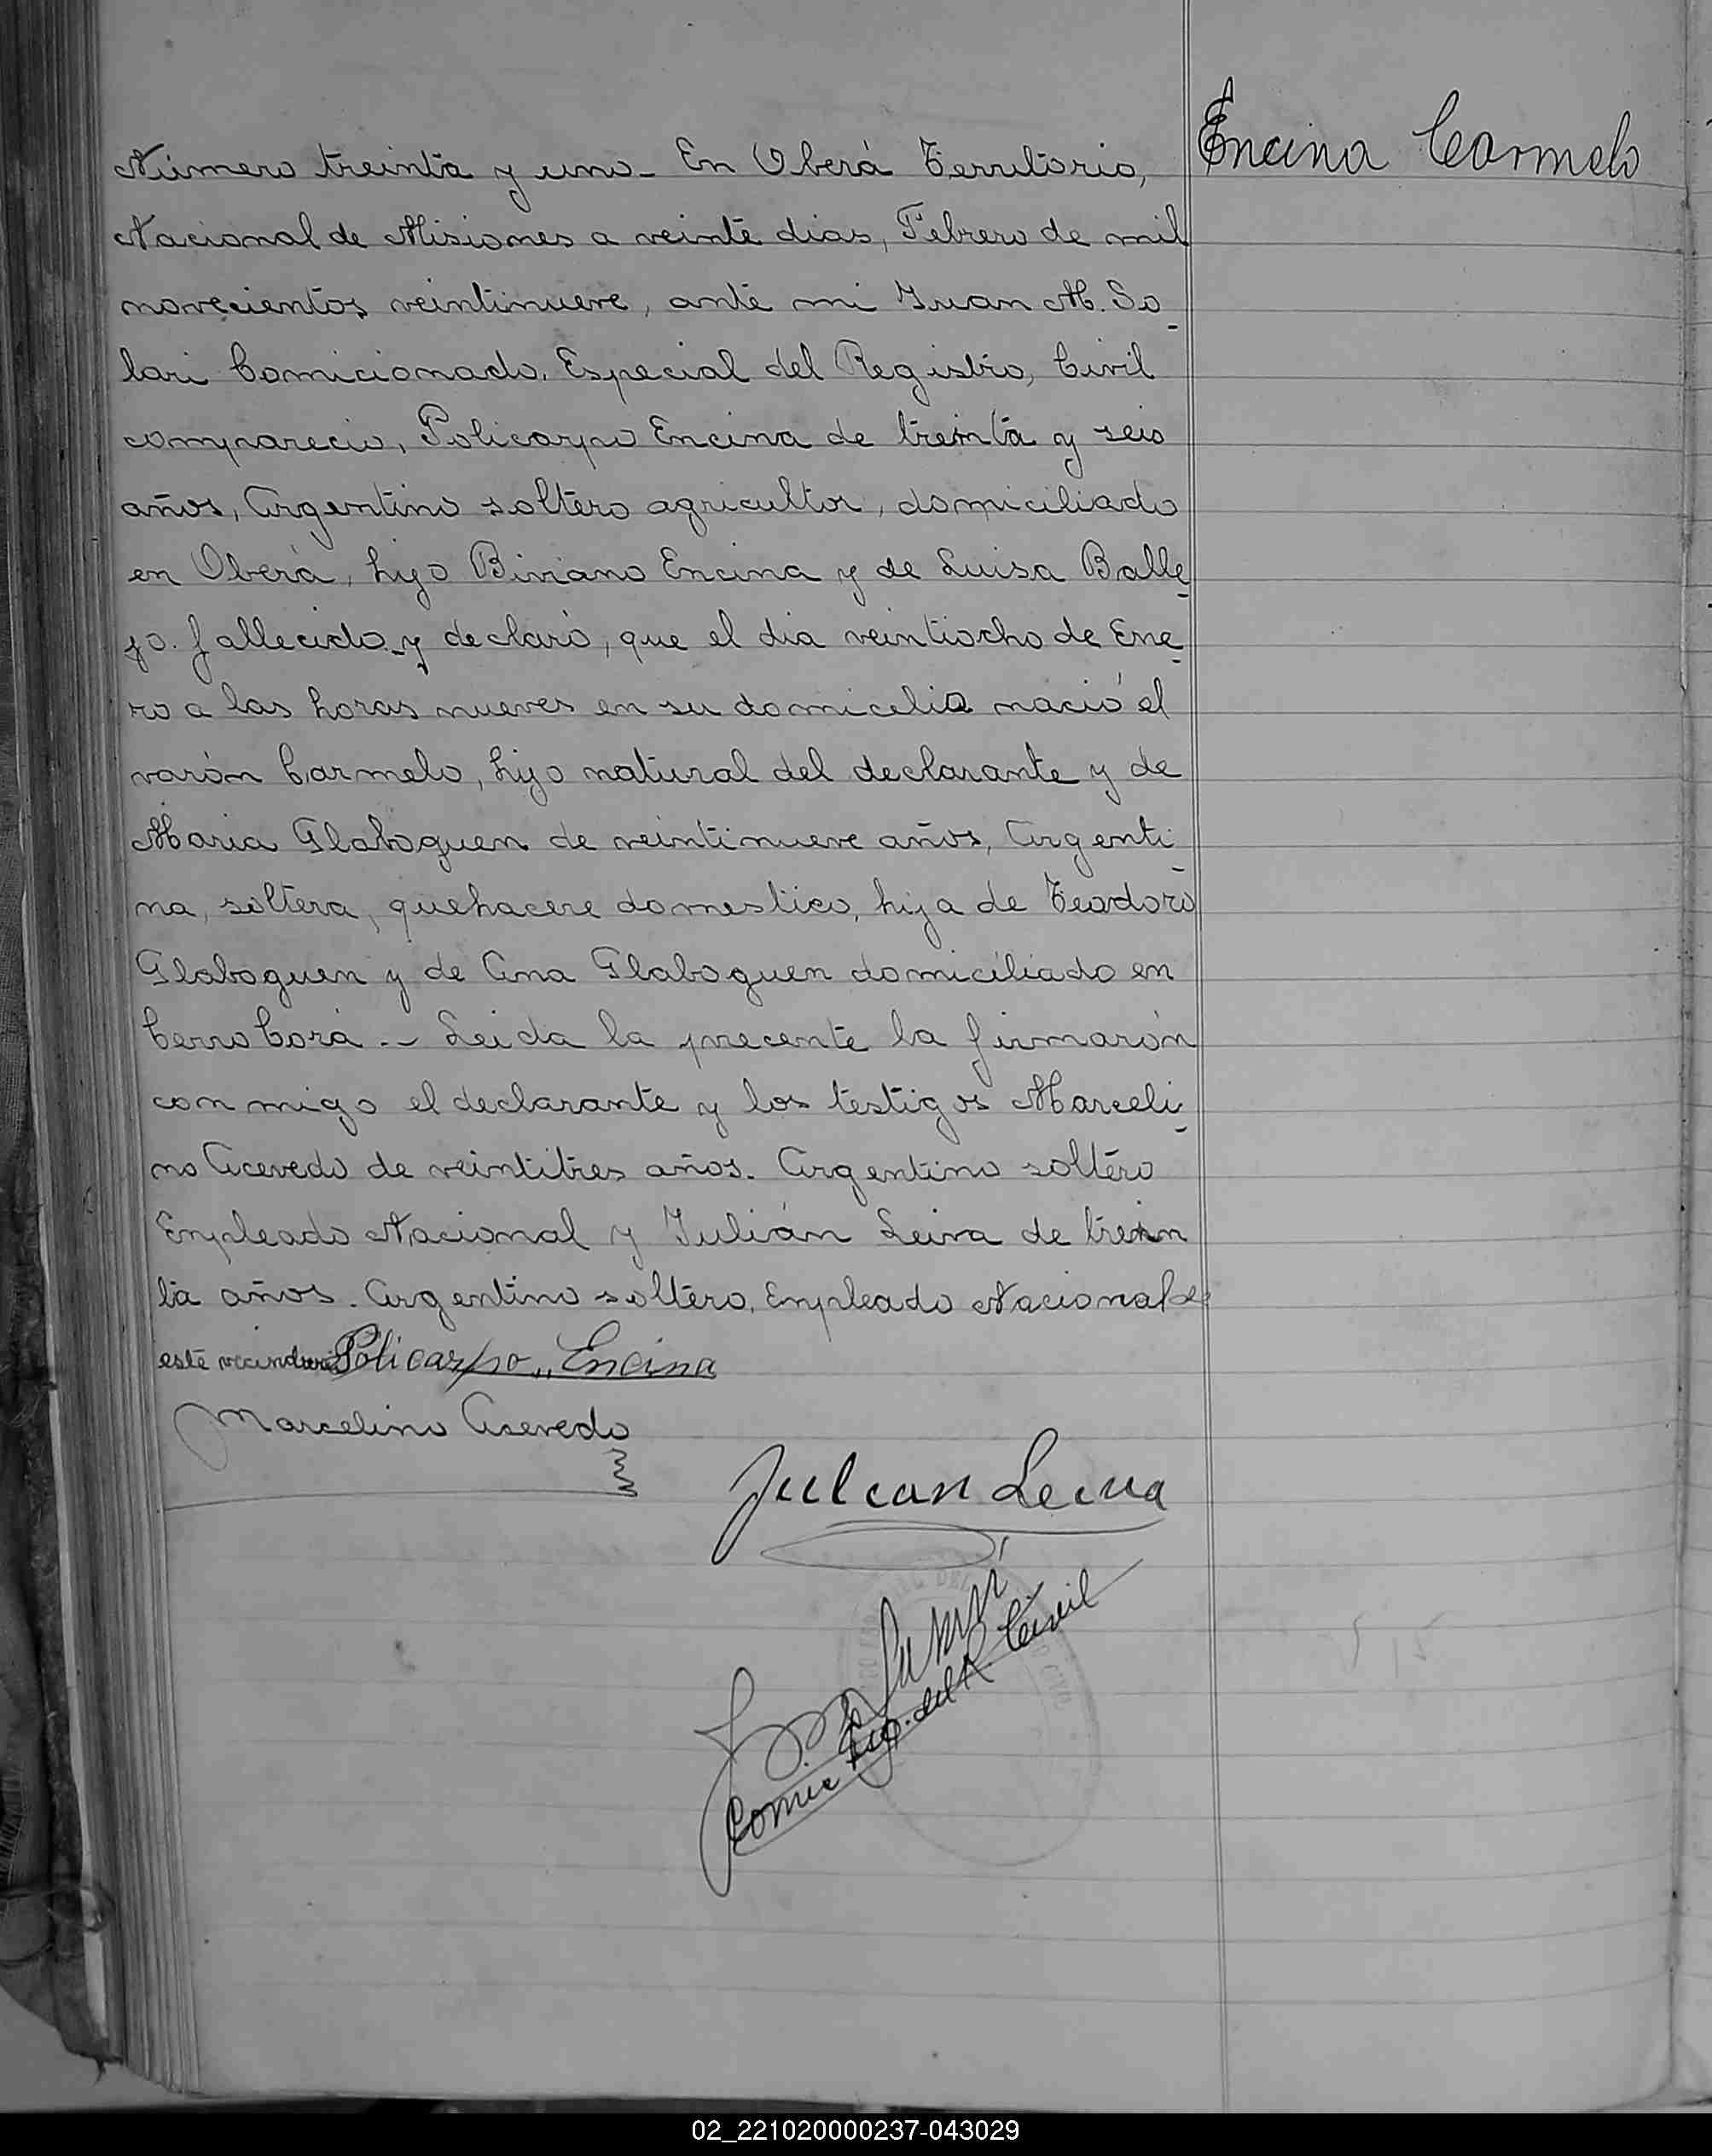 Encina Carmelo
Número treinta y uno - En Oberá Territorio,
Nacional de Misiones a veinte dias, Febrero de mil
novecientos veintinueve, ante mi Juan M. So-
lari Comicionado. Especial del Registro, Civil
comparecio, Policarpo Encina de treinta y seis
años, Argentino soltero agricultor, domiciliado
en Oberá, hijo Biviano Encina y de Luisa Balle-
jo. fallecido y declaró, que el dia veintiocho de Ene-
ro a las horas nueves en su domicelio nació el
varón Carmelo, hijo natural del declarante y de
Maria Glaboguen de veintinueve años, Argenti-
na, soltera, quehacere domestico, hija de Teodoro
Glaboguen y de Ana Glaboguen domiciliado en
Cerro Corá .- Leida la precente la firmarón
con migo el declarante y los testigos Marceli-
no Acevedo de veintitres años. Argentino soltero
Empleado Nacional y Julián Leiva de trein
ta años. Argentino soltero, Empleado Nacional de
este vecindario Policarpo,, Encina
Marcelino Acevedo
Julian Leiva
Comic Esp. del R. Civil
02_221020000237-043029